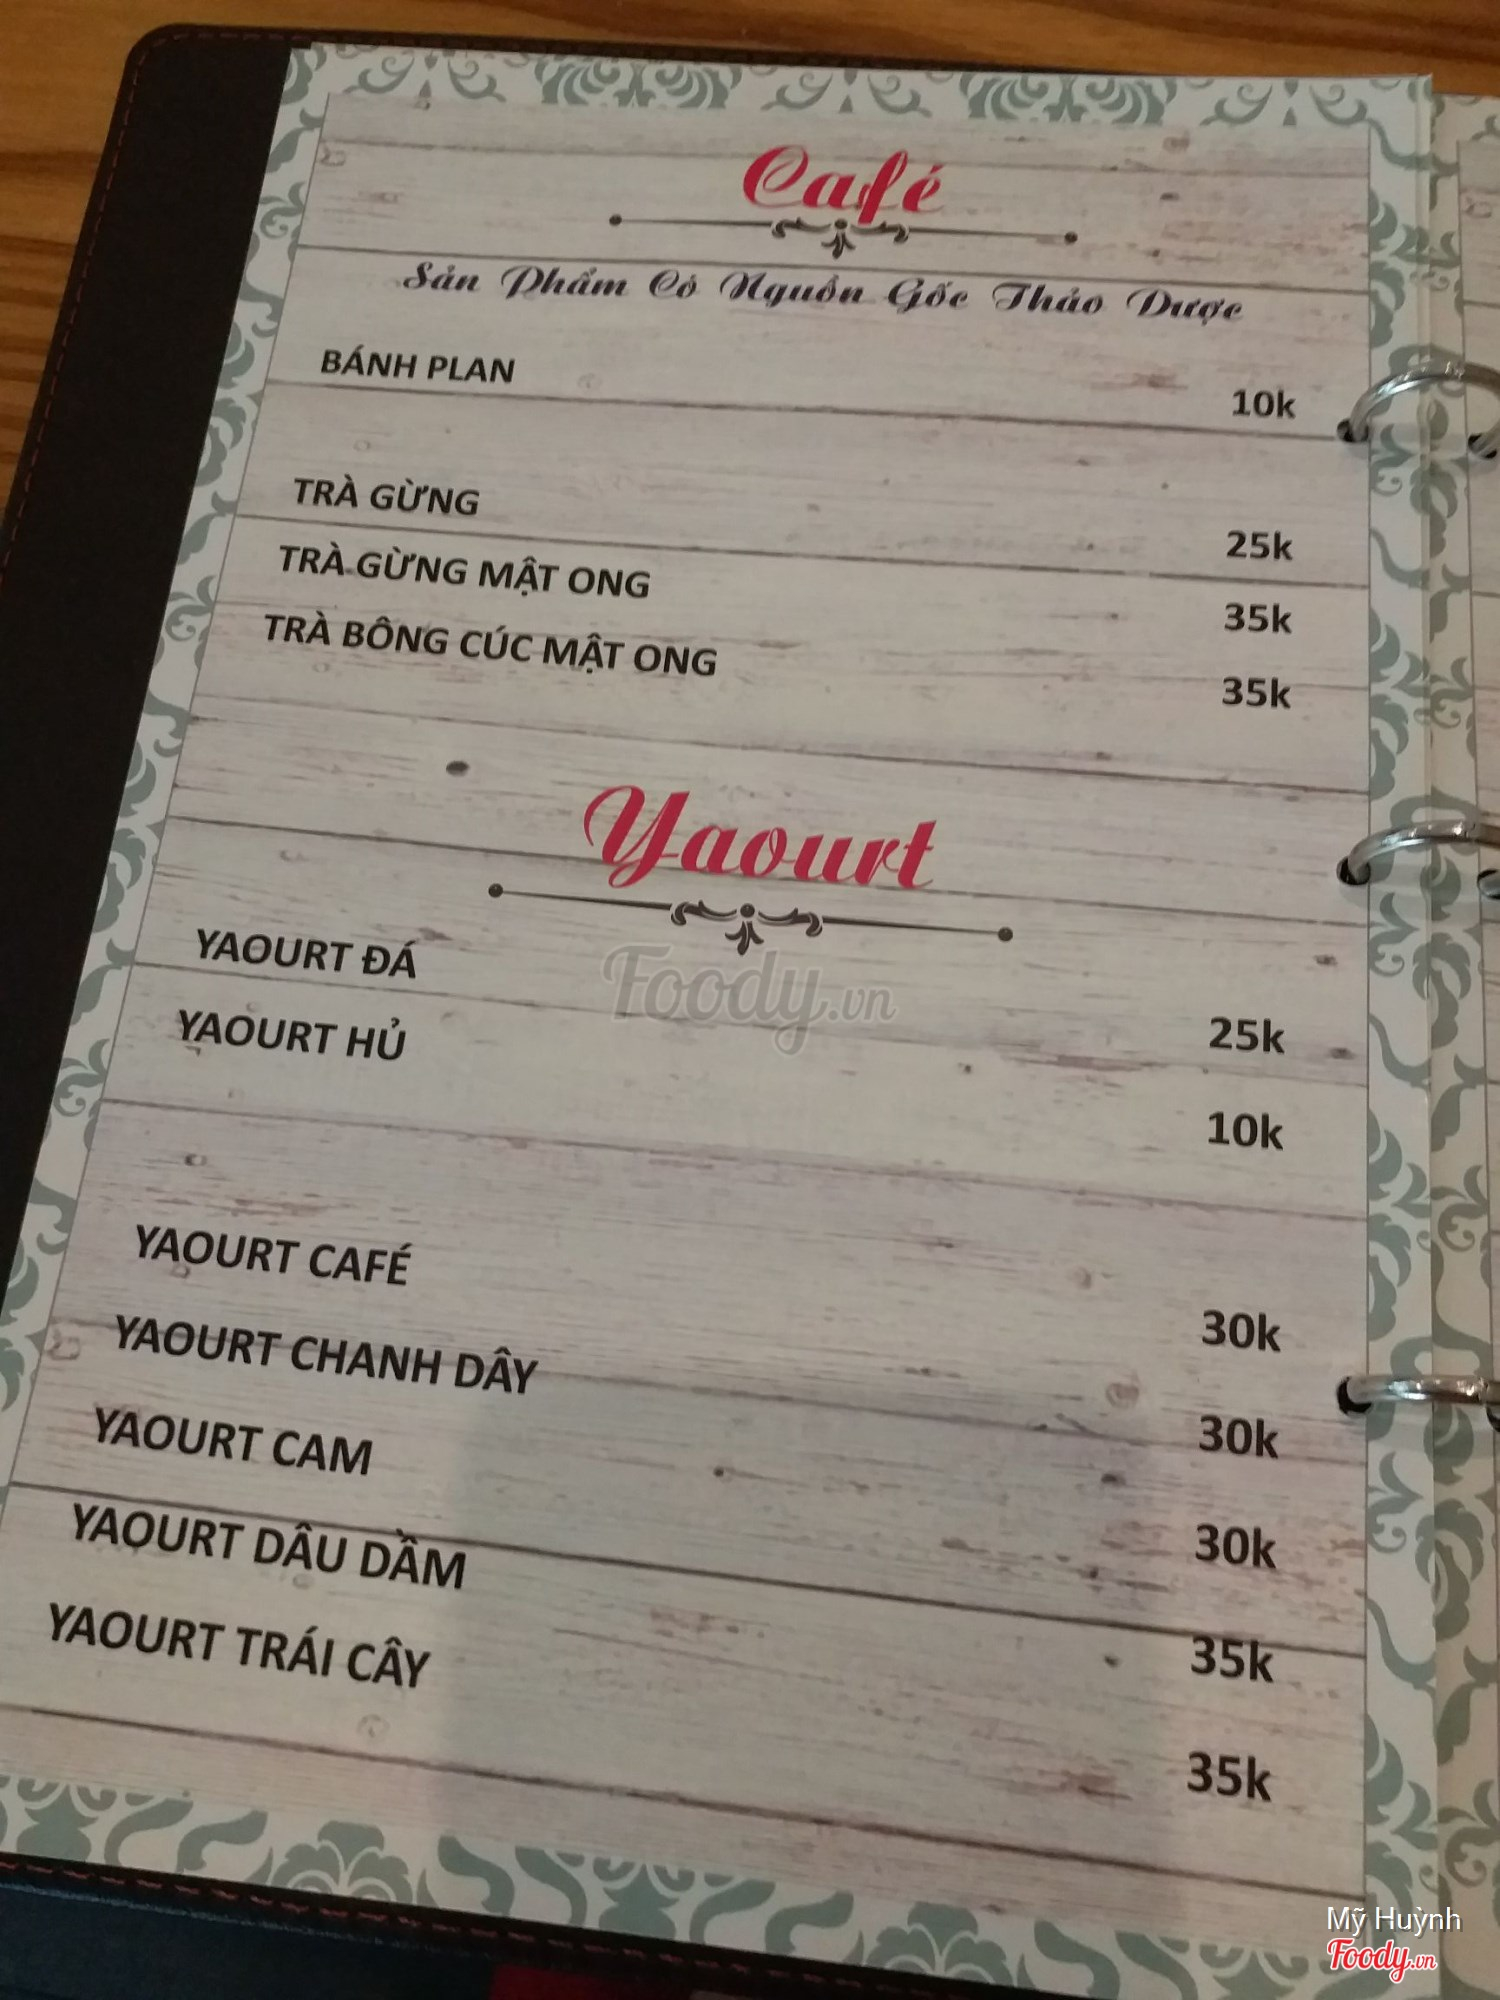 Café
Sản Phẩm Có Nguồn Gốc Thảo Dược
BÁNH PLAN 10k
TRÀ GỪNG 25k
TRÀ GỪNG MẬT ONG 35k
TRÀ BÔNG CÚC MẬT ONG 35k
Yaourt
YAOURT ĐÁ 25k
YAOURT HỦ 10k
YAOURT CAFÉ 30k
YAOURT CHANH DÂY 30k
YAOURT CAM 30k
YAOURT DÂU DẦM 35k
YAOURT TRÁI CÂY 35k
Foody.vn
Mỹ Huỳnh
Foody.vn